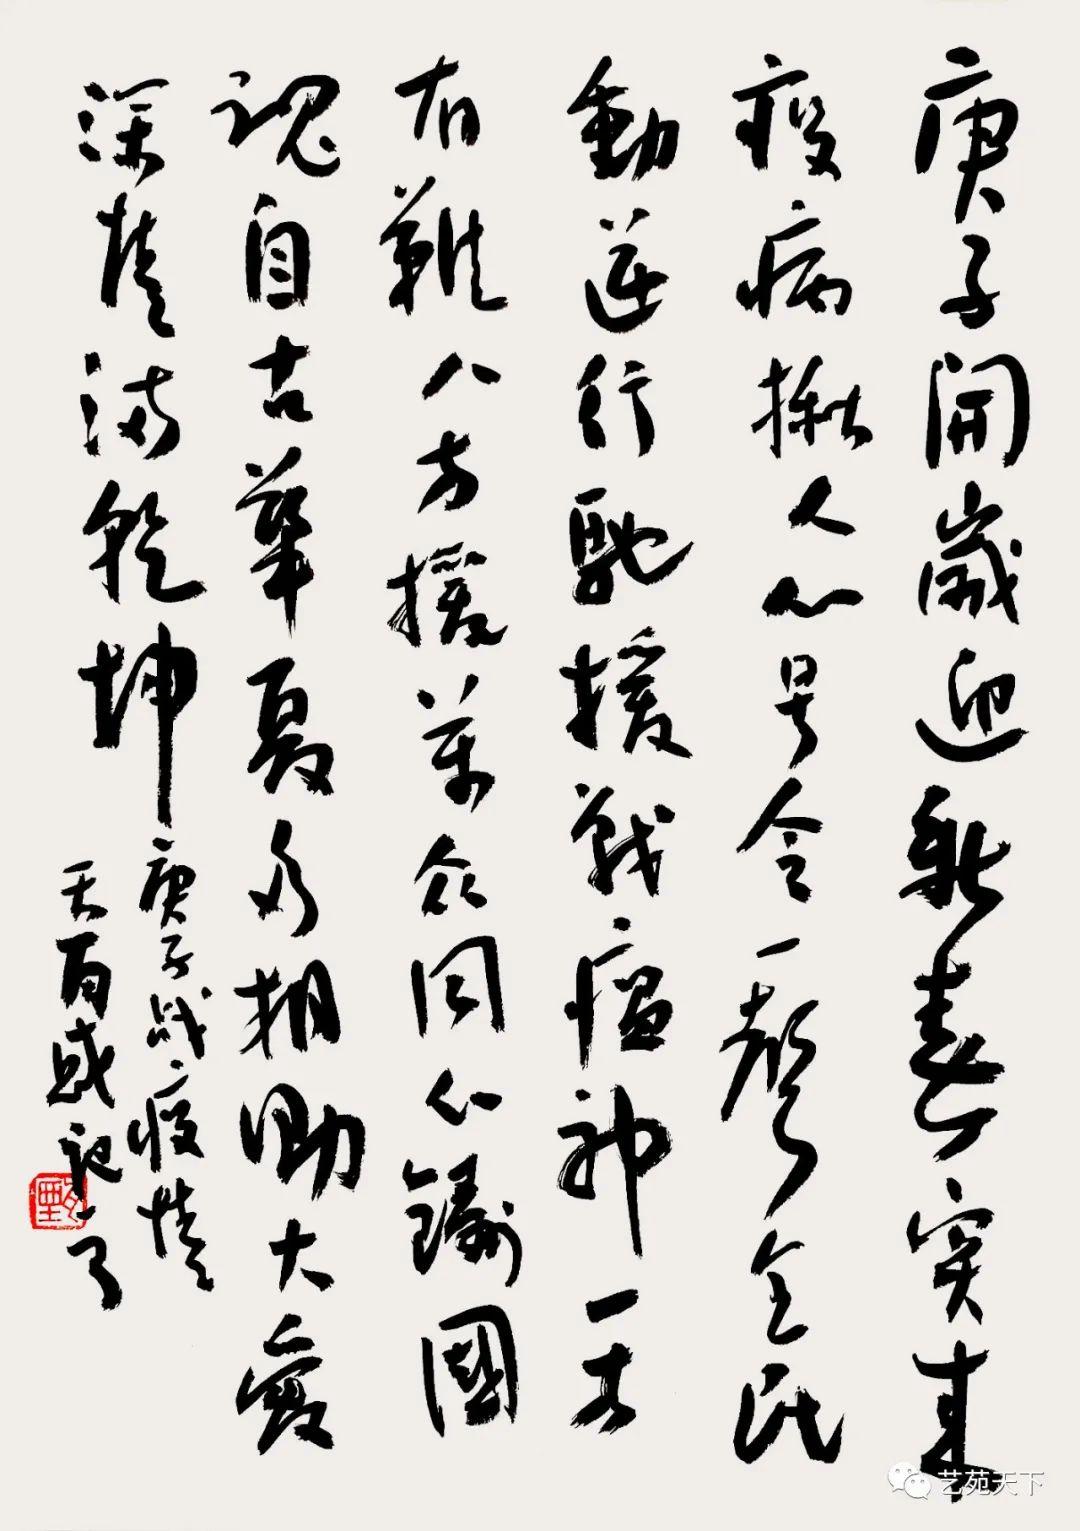 庚子開歲迎新春突来
疫病揪人心号令一聲全民
動逆行馳援戰瘟神一方
有難八方援萬众同心鑄國
魂自古華夏多相助大愛
深情滿乾坤
庚子战疫情
有感记
艺苑天下